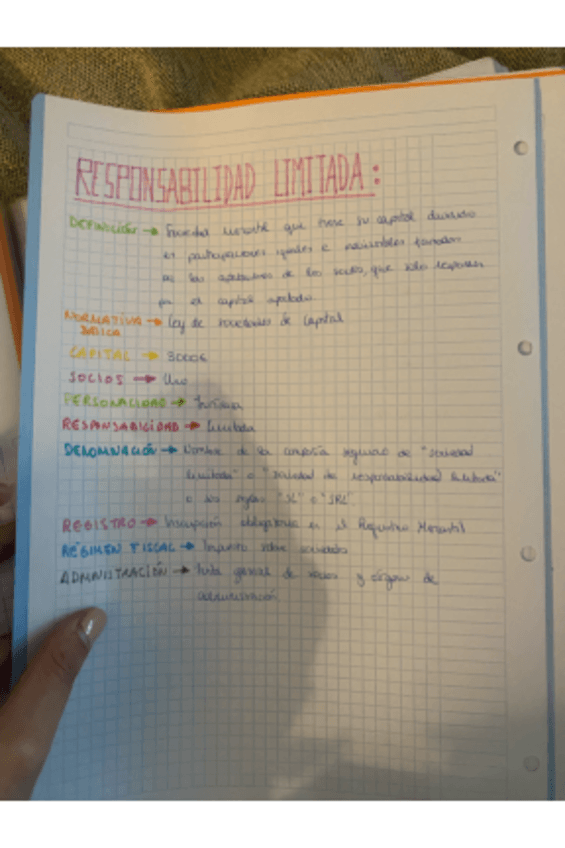 RESPONSABILIDAD LIMITADA:
DEFINICIÓN → Sociedad Mercantil que tiene su capital dividido
en participaciones iguales e indivisibles formadas
por las aportaciones de los socios, que sólo responden
por el capital aportado.
NORMATIVA → Ley de sociedades de Capital
BÁSICA
CAPITAL → 3000€
SOCIOS → Uno
PERSONALIDAD → Jurídica
RESPONSABILIDAD → Limitada
DENOMINACIÓN → Nombre de la compañía seguido de "sociedad
limitada" o "sociedad de responsabilidad limitada"
o las siglas "SL" o "SRL"
REGISTRO → Inscripción obligatoria en el Registro Mercantil
RÉGIMEN FISCAL → Impuesto sobre sociedades
ADMINISTRACIÓN → Junta general de socios y órgano de
administración